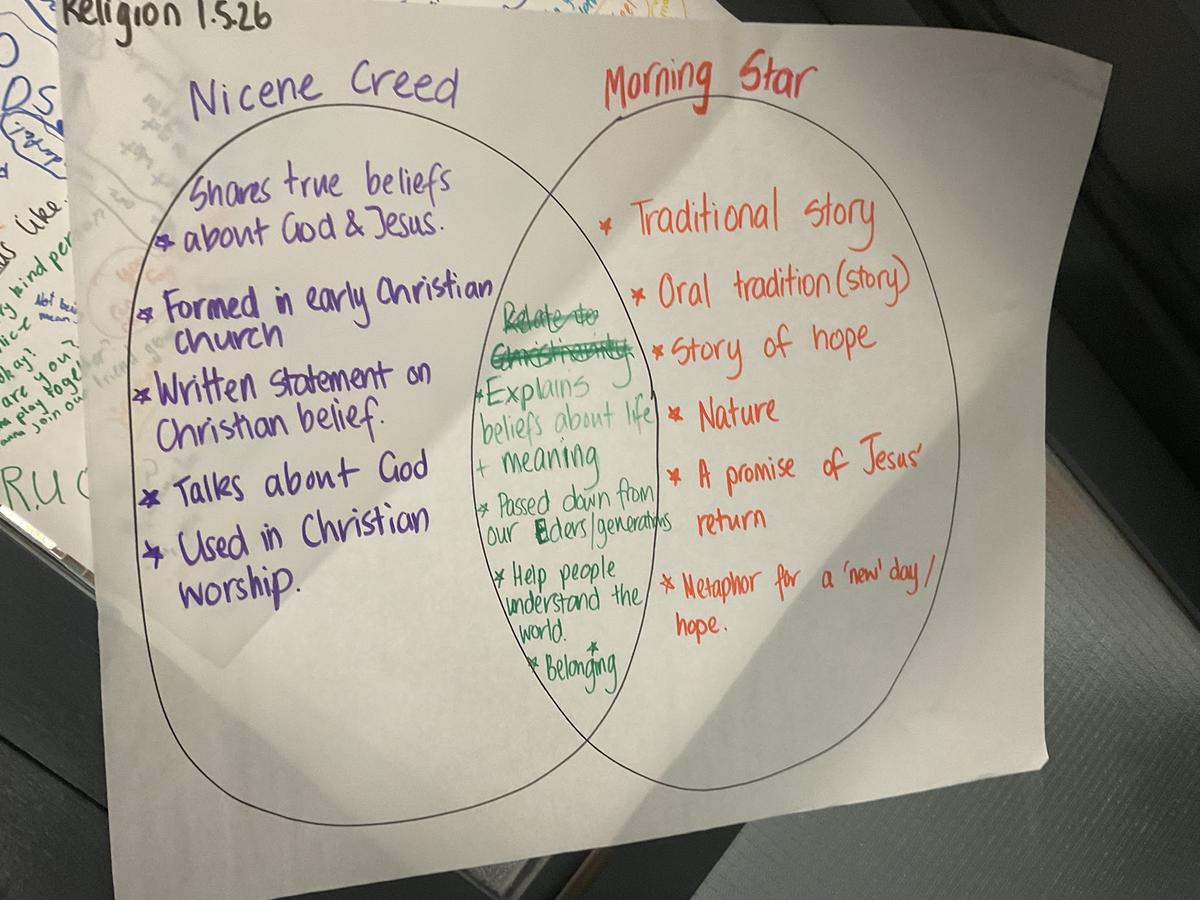 Religion 1.5.26
Nicene Creed
Shares true beliefs
* about God & Jesus.
* Formed in early Christian
church
* Written statement on
Christian belief.
* Talks about God
* Used in Christian
worship.
Relate to
Christianity
* Explains
beliefs about life
+ meaning
* Passed down from
our Elders/generations
* Help people
understand the
world.
* Belonging *
Morning Star
* Traditional story
* Oral tradition (story)
* Story of hope
* Nature
* A promise of Jesus'
return
* Metaphor for a 'new' day /
hope.
DS
like.
kind per
Not being
mean.
okay?
are you?
play toge
join ou
R.U